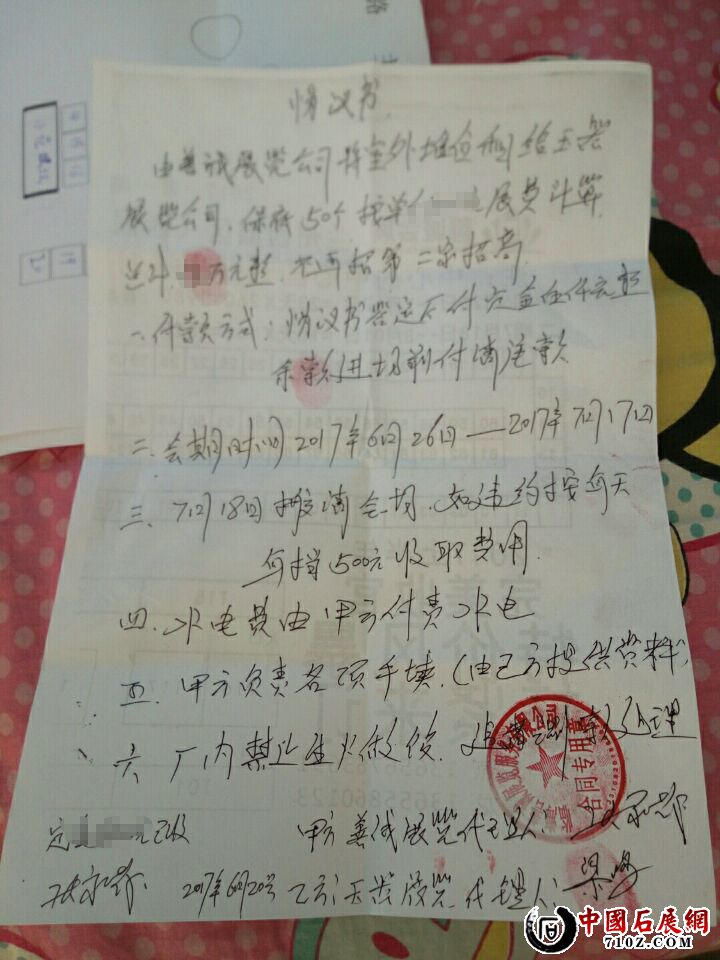 协议书
由普诚展览公司将室外摊位租给玉器
展览公司，保底50个按单 展费计算
总计 万元整，不再招第二家招商
一、付款方式：协议书签定后付定金伍仟元整
余款进场前付清完款
二、会期时间2017年6月26日—2017年7月17日
三、7月18日搬清会场，如违约按每天
每档500元收取费用
四、水电费由甲方付费水电
五、甲方负责各项手续，（由乙方提供资料）
六、厂内禁止生火做饭，
合同专用章
定 已收 甲方普诚展览代理人：
2017年6月20号 乙方：玉器展览代理人：
中國石展網
710Z.COM